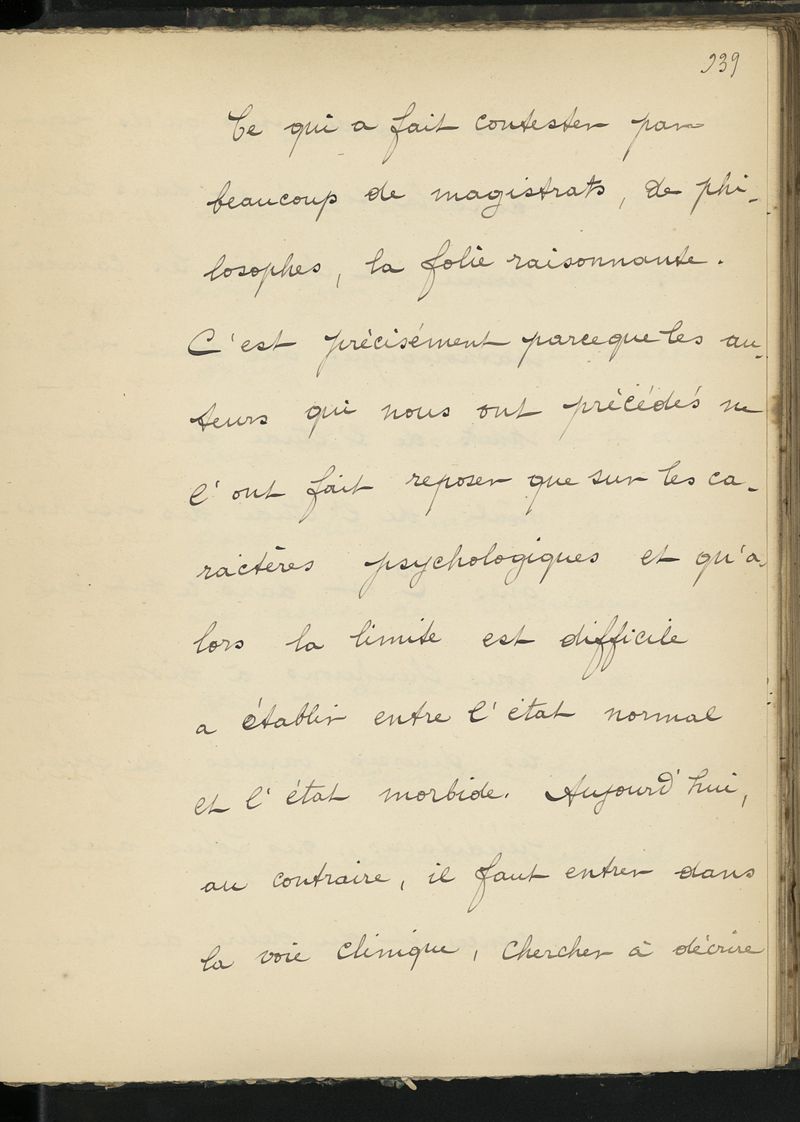 339
Ce qui a fait contester par
beaucoup de magistrats, de phi-
losophes, la folie raisonnante.
C'est précisément parceque les au-
teurs qui nous ont précédés ne
l'ont fait reposer que sur les ca-
ractères psychologiques et qu'a-
lors la limite est difficile
a établir entre l'état normal
et l'état morbide. Aujourd'hui,
au contraire, il faut entrer dans
la voie clinique, chercher à décrire